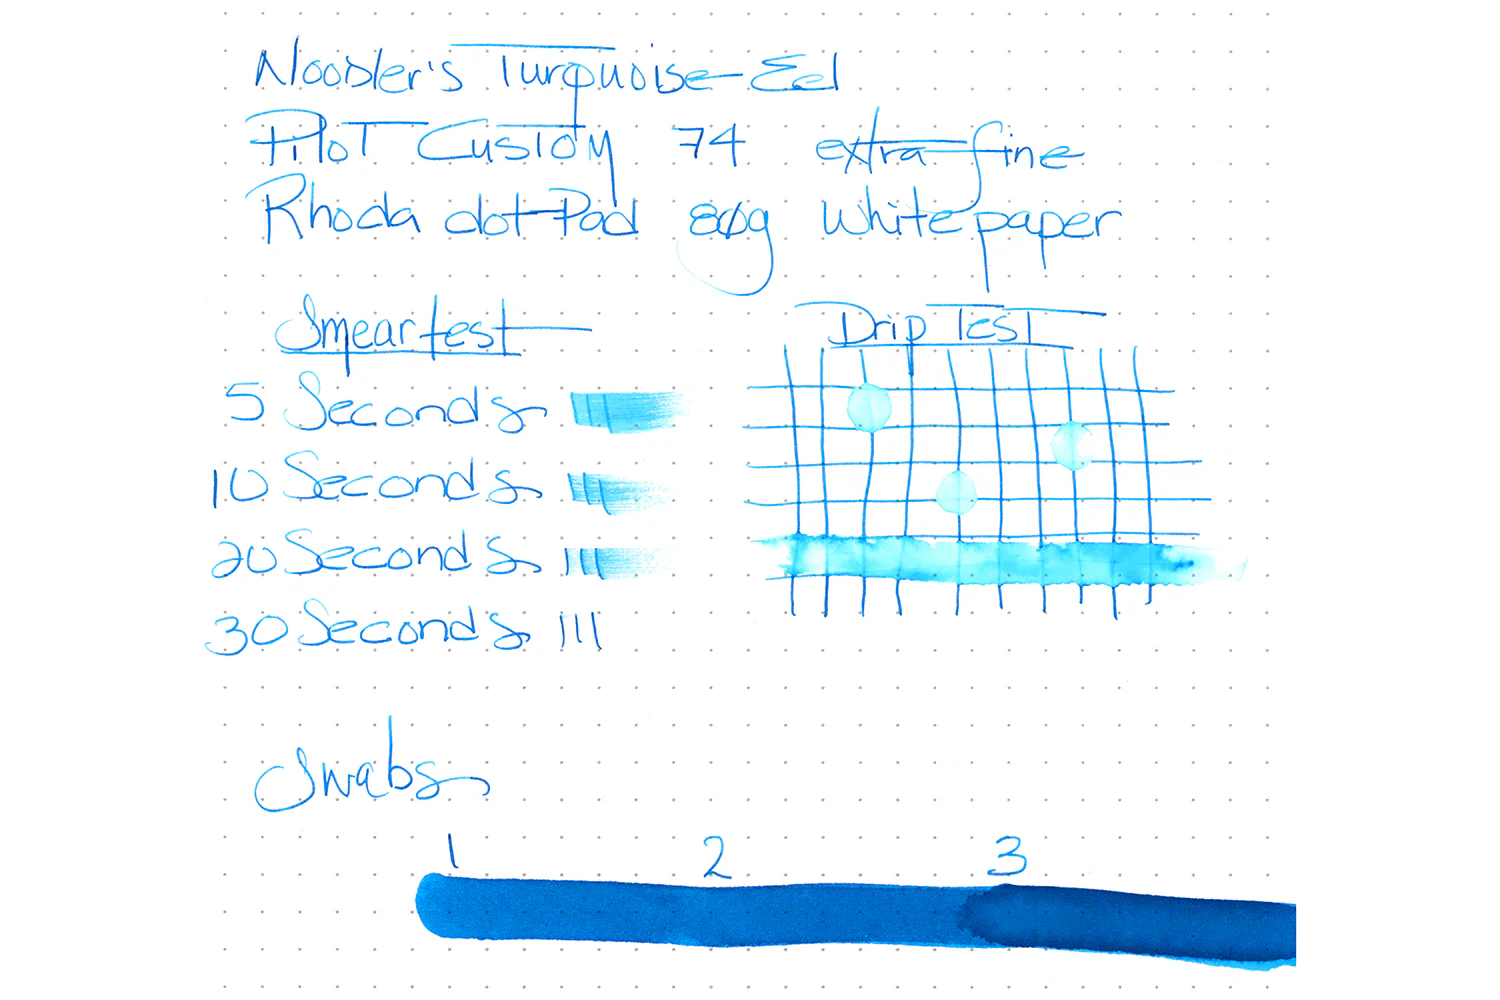 Noodler's Turquoise Eel
Pilot Custom 74 extra-fine
Rhoda dot Pad 80g white paper
Smear test
5 Seconds
10 Seconds
20 Seconds
30 Seconds
Drip Test
Swabs
1 2 3